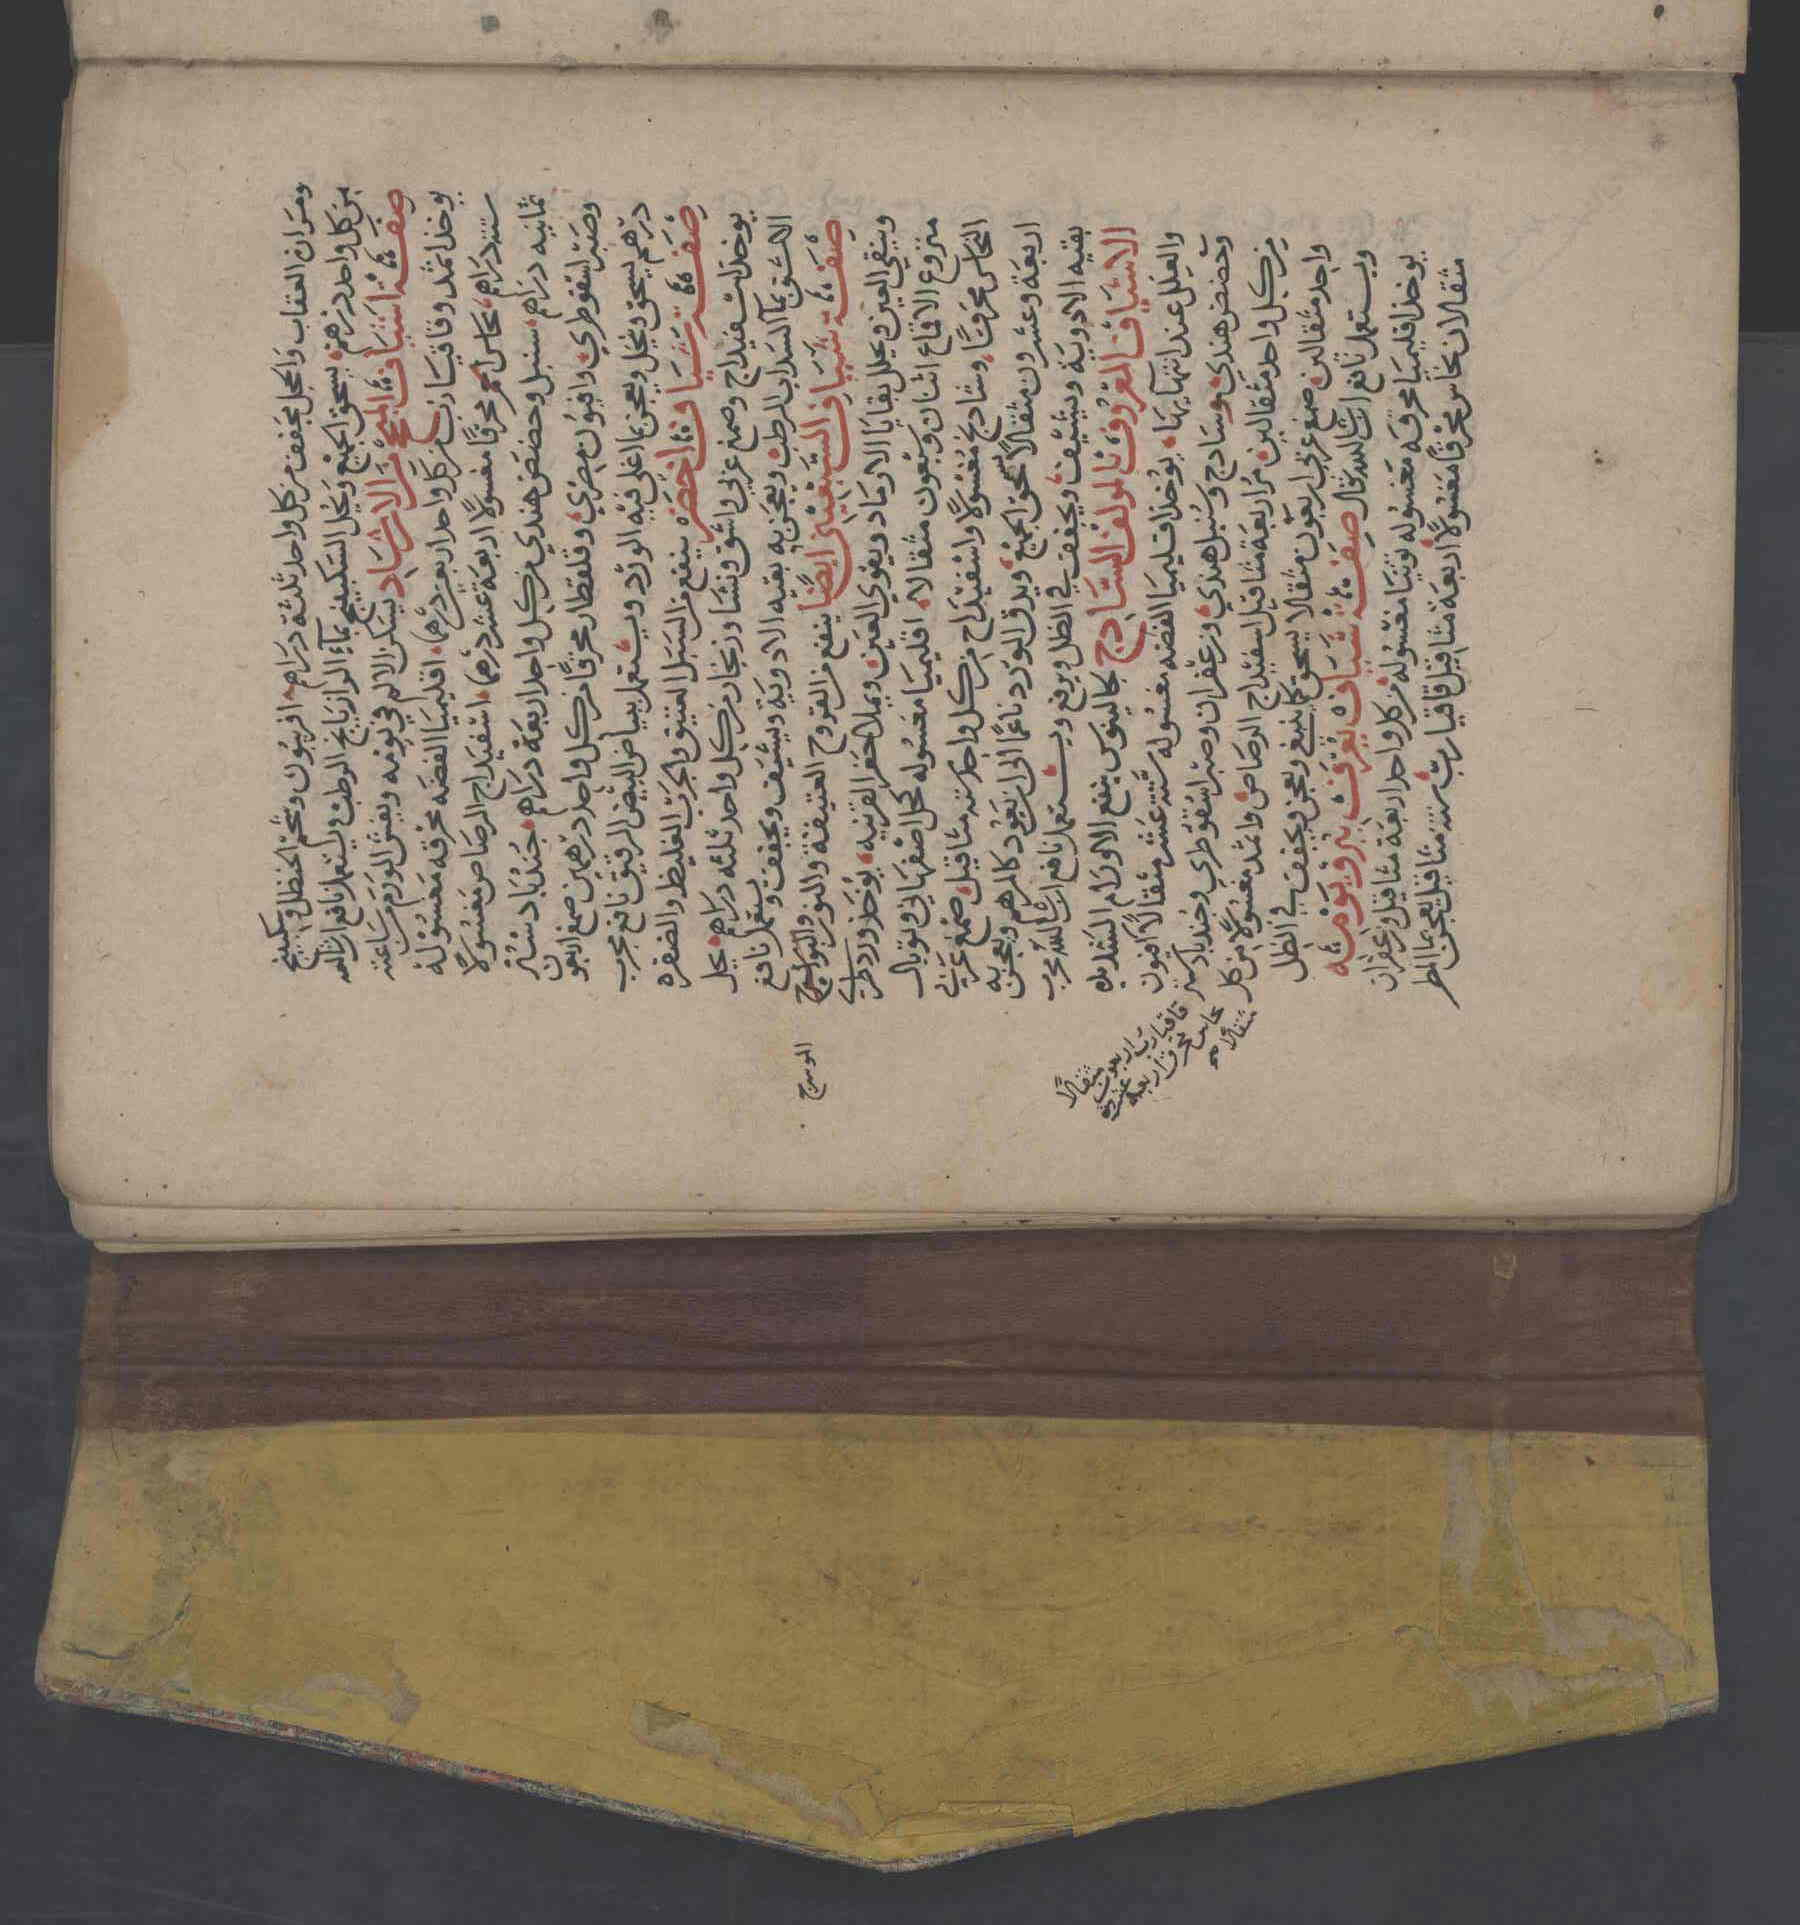 ومران العقاب والحجل مجفف من كل واحد ثلثة دراهم افربيون وشحم الحنظل وسكبينج
من كل واحد درهم يسحق الجميع ويحل السكبينج بماء الرازيانج الرطب ويستعمل نافع ان شا الله
صفة اشياف المجمر الارشياد يسكن الالم في يومه ويفش الورم من ساعته
يوخذ اثمد وقاقيا من كل واحد اربعين درهما اقليميا الفضه محرقه مغسولة
ستة دراهم نحاس احمر محرقا مغسولا اربعة عشر درهما اسفيداج الرصاص مغسولا
ثمانيه دراهم سنبل وحضض هندي من كل واحد اربعة دراهم جندبادستر
وصبر اسقوطري وافيون مصري وقلقطار محرقا من كل واحد درهمين صمغ اربعون
درهم يسحق وينخل ويعجن بما اغلي فيه الورد ويستعمل ببياض البيض الرقيق نافع مجرب
صفة شياف اخضر ينفع من السبل العتيق والجرب الغليظ والظفره
يوخذ اسفيداج وصمغ عربي واشق ونشا وزنجار من كل واحد ثلثه دراهم يحل
الاشق بماء السذاب الرطب ويعجن به بقيه الادوية ويشيف ويجفف ويستعمل نافع
صفة شياف السبعيني ايضا ينفع من القروح العتيقة والبثور والموسرج
وينقي العين ويحلل بقايا الارماد ويقوي العين ويملا حفر القرنيه يوخذ ورد طري
منزوع الاقماع اثنان وسبعون مثقالا اقليميا مغسوله كحل اصفهاني وتوبال
النحاس محرقا وشادنج مغسولا واسفيداج من كل واحد سته مثاقيل صمغ عربي
اربعة وعشرون مثقالا يسحق الجميع ويدق الورد ناعما الى ان يعود كالمرهم ويعجن به
بقيه الادوية ويشيف ويجفف في الظل ويرفع ويستعمل نافع ان شا الله مجرب
الاشياف المعروف بالمولف الساذج لجالينوس ينفع الاورام الشديده
والعلل عند انتهايها يوخذ اقليميا الفضه مغسوله ستة عشر مثقالا افيون
وحضض هندي وساذج وسنبل هندي وزعفران وصبر اسقوطري وجندبادستر
من كل واحد مثقالين مر اربعة مثاقيل اسفيداج الرصاص واثمد مغسولا من كل
واحد مثقالين صمغ عربي اربعون مثقالا يسحق كما ينبغي ويعجن ويجفف في الظل
ويستعمل نافع ان شا الله تعالى صفة شياف يعرف ببرو يومه
يوخذ اقليميا محرقه مغسوله توتيا مغسوله من كل واحد اربعة مثاقيل زعفران
مثقالان نحاس محرقا مغسولا اربعة مثاقيل قاقيا رب سته مثاقيل يعجن بما المطر
الموسرج
قاقيا رب اربعون مثقالا
نحاس محرق اربعة عشر
مثقالا صح